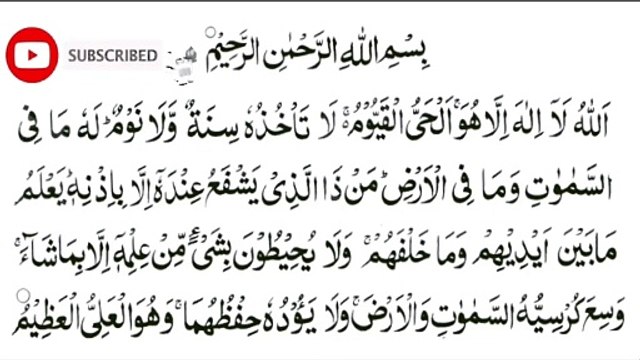 SUBSCRIBED بِسْمِ اللهِ الرَّحْمٰنِ الرَّحِيْمِ
اَللهُ لَآ اِلٰهَ اِلَّا هُوَ ۚ اَلْحَیُّ الْقَيُّوْمُ ۚ لَا تَاْخُذُهٗ سِنَةٌ وَّلَا نَوْمٌ ؕ لَهٗ مَا فِی
السَّمٰوٰتِ وَمَا فِی الْاَرْضِ ؕ مَنْ ذَا الَّذِیْ يَشْفَعُ عِنْدَهٗۤ اِلَّا بِاِذْنِهٖ ؕ يَعْلَمُ
مَا بَيْنَ اَيْدِيْهِمْ وَمَا خَلْفَهُمْ ۚ وَلَا يُحِيْطُوْنَ بِشَیْءٍ مِّنْ عِلْمِهٖۤ اِلَّا بِمَا شَآءَ ۚ
وَسِعَ كُرْسِيُّهُ السَّمٰوٰتِ وَالْاَرْضَ ۚ وَلَا يَـُٔوْدُهٗ حِفْظُهُمَا ۚ وَهُوَ الْعَلِیُّ الْعَظِيْمُ